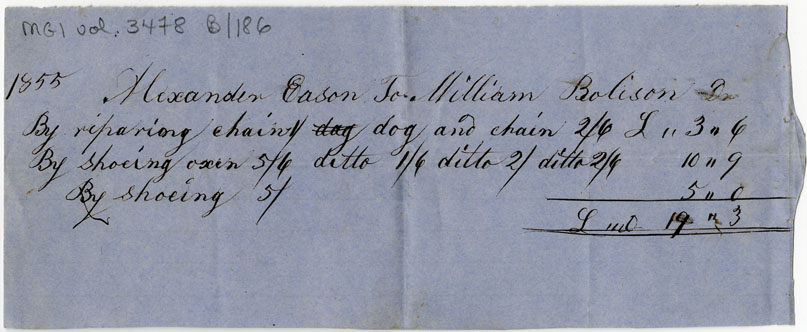 MG1 vol. 3478 B/186
1855 Alexander Eason To William Bolison Dr
By riparing chain 1/ dag dog and chain 2/6 L " 3 " 6
By shoeing oxen 5/6 ditto 1/6 ditto 2/ ditto 2/6 10 " 9
By shoeing 5/ 5 " 0
L "0 19 " 3